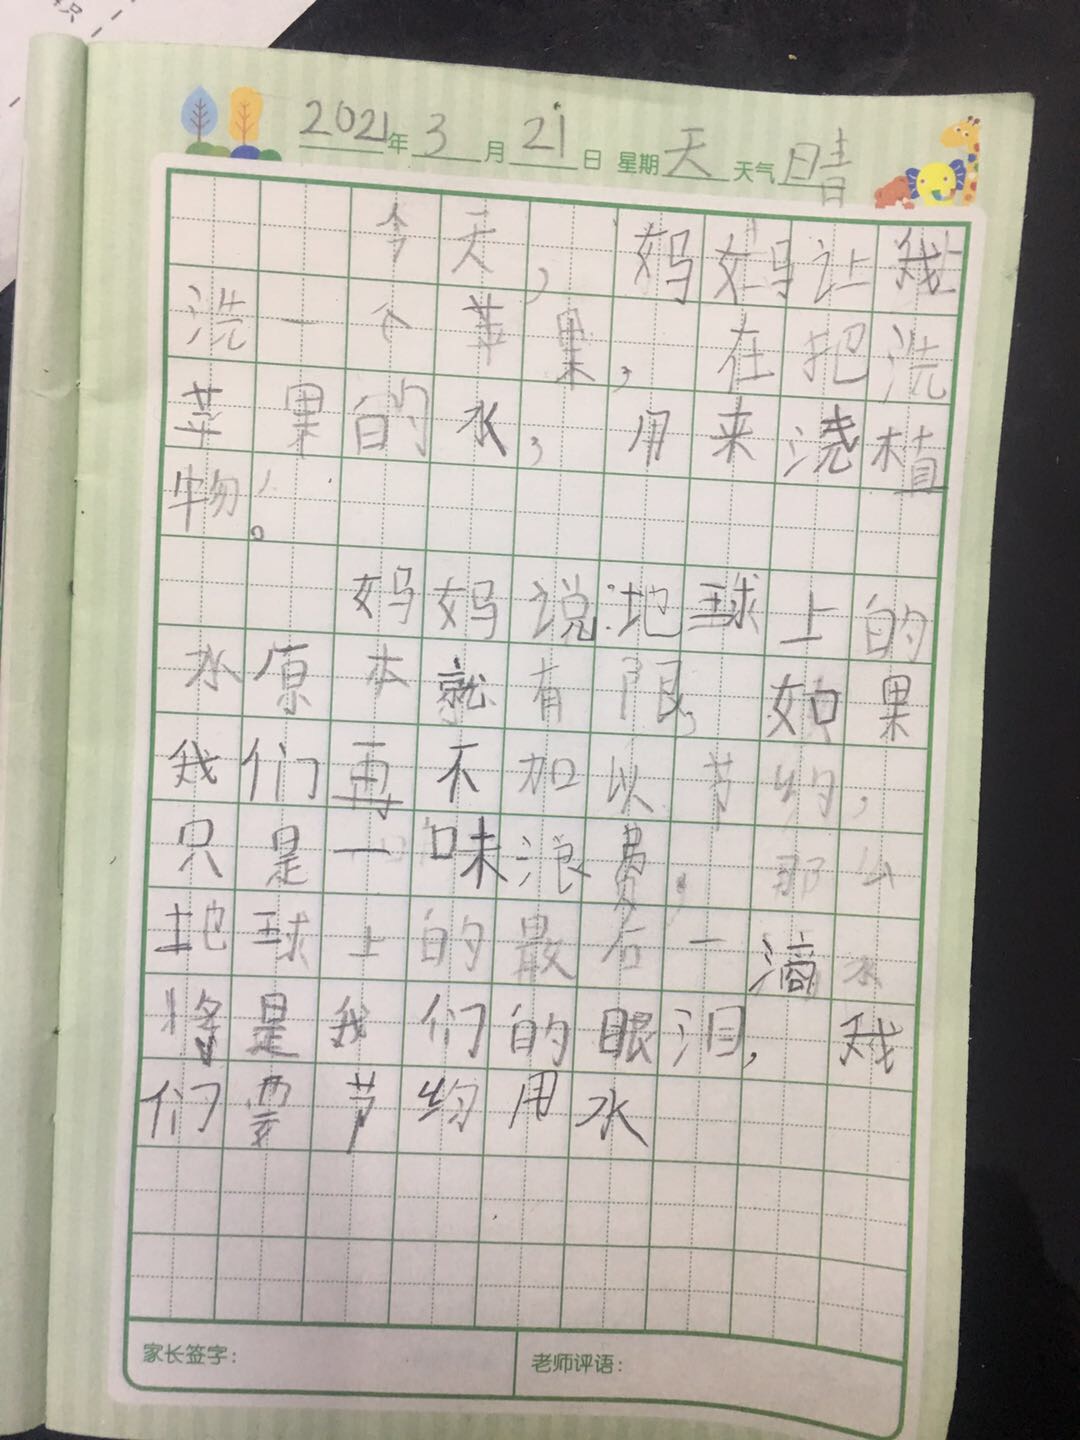 2021年3月21日 星期天 天气晴
今天,妈妈让我
洗一个苹果,在把洗
苹果的水,用来浇植
物。
妈妈说地球上的
水原本就有限,如果
我们再不加以节约,
只是一味浪费,那么
地球上的最后一滴水
将是我们的眼泪,我
们要节约用水
家长签字:
老师评语: